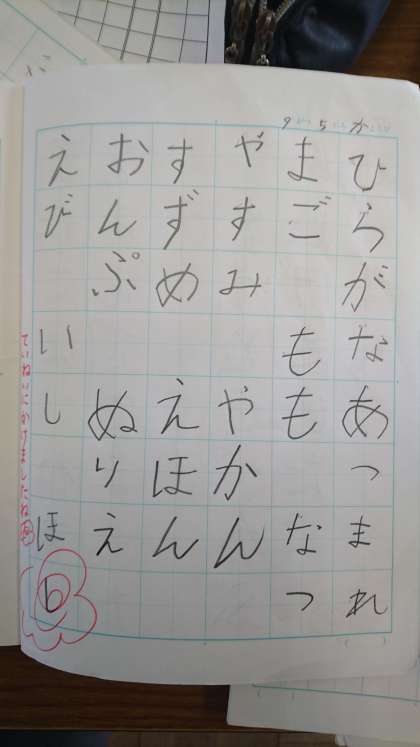 9がつ5にち かようび
ひらがなあつまれ
まご もも なつ
やすみ やかん
すずめ えほん
おんぷ ぬりえ
えび いし ほし
ていねいにかけましたね